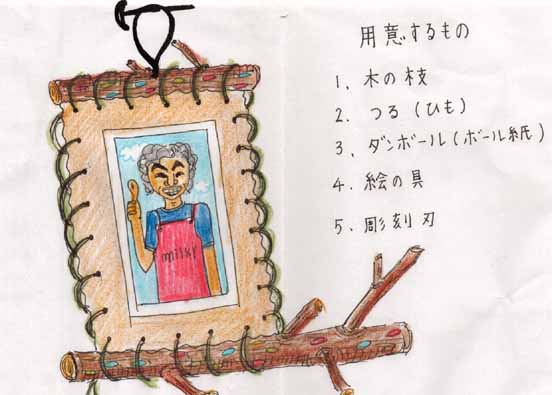 用意するもの
1、木の枝
2、つる(ひも)
3、ダンボール(ボール紙)
4、絵の具
5、彫刻刃
milky